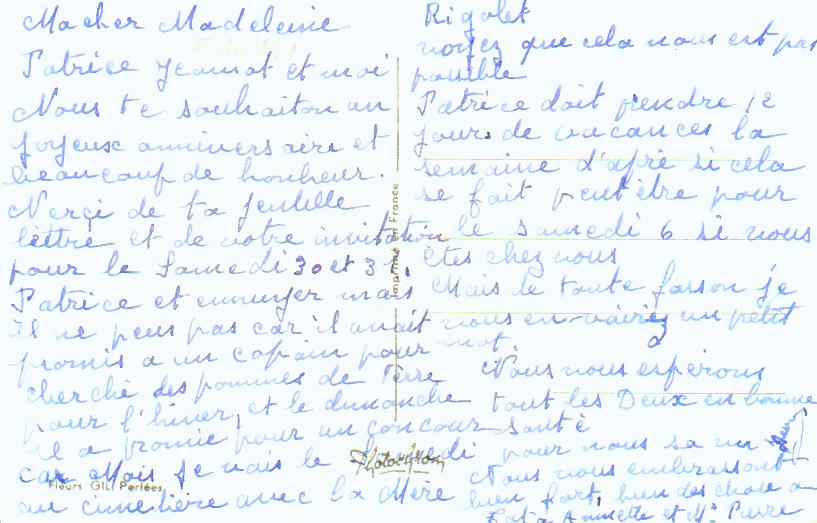 Ma cher Madeleine
Patrice Jeannot et moi
Nous te souhaiton un
Joyeux anniversaire et
beaucoup de bonheur.
Merçi de ta Jentille
lettre et de votre invitation
pour le Samedi 30 et 31,
Patrice et ennuyer mais
il ne peus pas car il avait
promis a un copain pour
cherché des pommes de Terre
pour l'hiver, et le dimanche
il a promie pour un concour
car Mois Je vais le
au cimetière avec la Mère
Rigolet
voyez que cela nous est pas
possible
Patrice doit prendre 12
jours de vacances la
semaine d'apré si cela
se fait peut être pour
le samedi 6 si vous
êtes chez vous
Mais de toute fasson je
vous en un petit
mot.
Nous vous espérons
tout les Deux en bonne
santé
pour nous sa va
Nous vous embrassont
bien fort, bien des chose a
Annette et Mr Pierre
Imprimé en France
Photochrom
Fleurs GILI Perlées